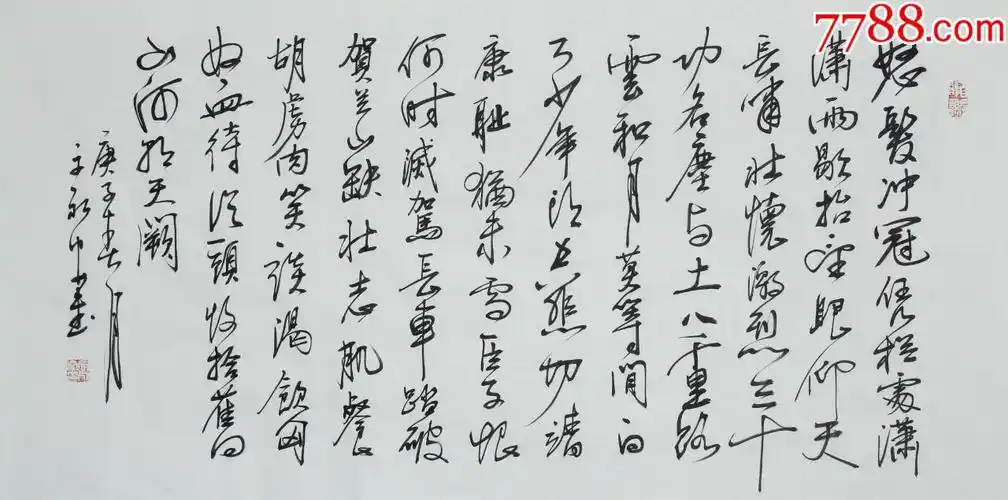 7788.com
怒髮冲冠凭栏處瀟
瀟雨歇抬望眼仰天
長嘯壯懷激烈三十
功名塵与土八千里路
雲和月莫等閒白
了少年头空悲切靖
康耻猶未雪臣子恨
何时滅駕長車踏破
賀兰山缺壯志飢餐
胡虜肉笑談渴飲匈
奴血待从頭收拾舊
山河朝天闕
庚子春月
書